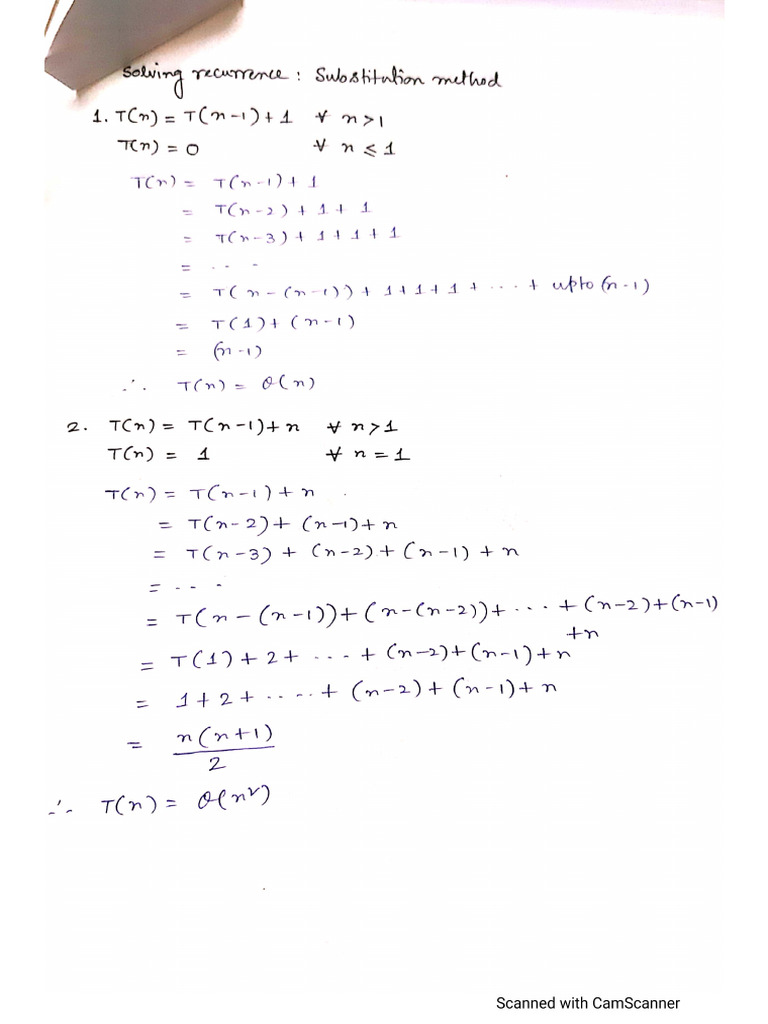 Solving recurrence : Substitution method
1. T(n) = T(n-1) + 1 ∀ n>1
T(n) = 0 ∀ n ≤ 1
T(n) = T(n-1) + 1
= T(n-2) + 1 + 1
= T(n-3) + 1 + 1 + 1
= ....
= T(n-(n-1)) + 1+1+1 + ... + upto (n-1)
= T(1) + (n-1)
= (n-1)
∴ T(n) = O(n)
2. T(n) = T(n-1) + n ∀ n>1
T(n) = 1 ∀ n = 1
T(n) = T(n-1) + n
= T(n-2) + (n-1) + n
= T(n-3) + (n-2) + (n-1) + n
= ....
= T(n-(n-1)) + (n-(n-2)) + ... + (n-2) + (n-1)
+n
= T(1) + 2 + ... + (n-2) + (n-1) + n
= 1 + 2 + ..... + (n-2) + (n-1) + n
= n(n+1)
2
∴ T(n) = O(n²)
Scanned with CamScanner